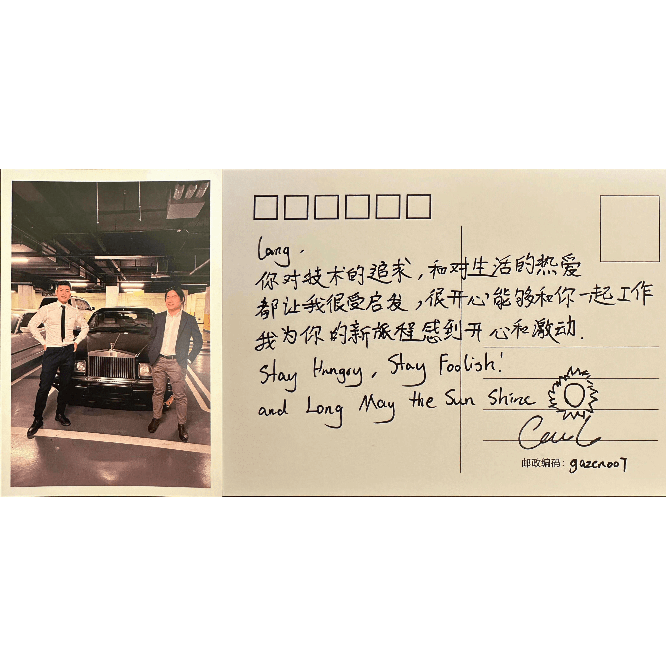 Lang,
你对技术的追求，和对生活的热爱
都让我很受启发，很开心能够和你一起工作
我为你的新旅程感到开心和激动.
Stay Hungry, Stay Foolish!
and Long May the Sun Shine
邮政编码：